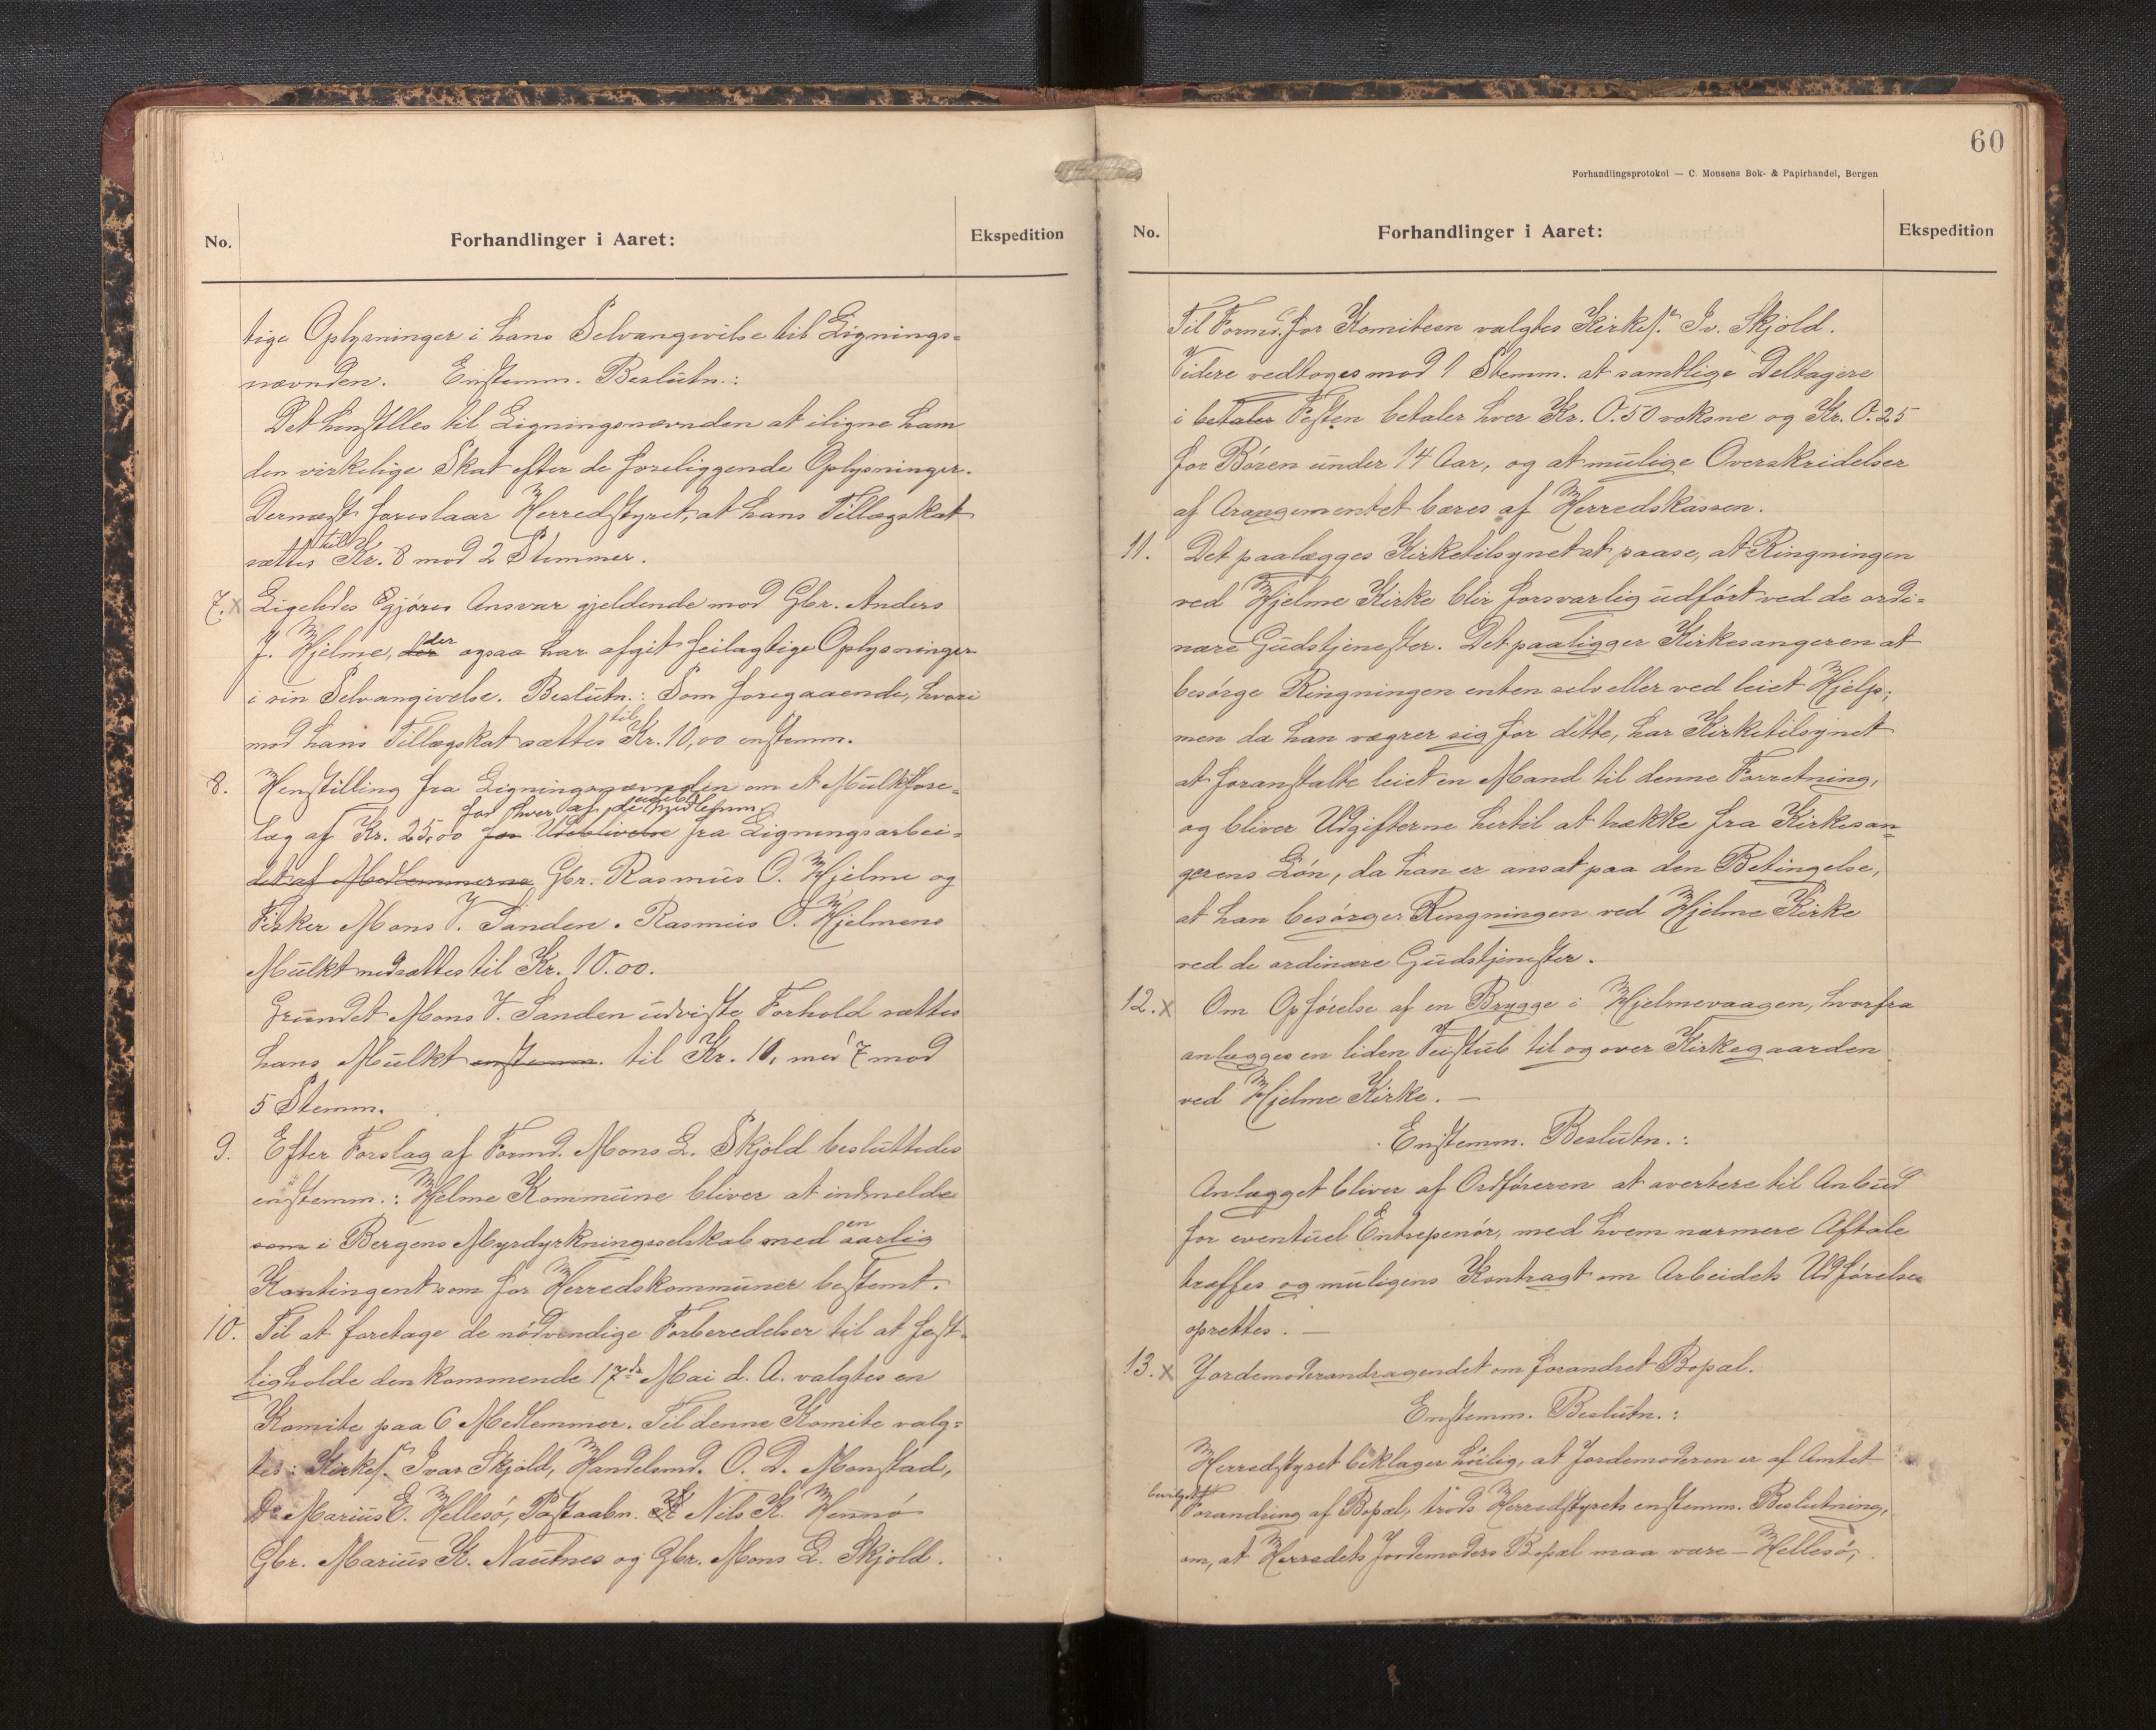 No.
Forhandlinger i Aaret:
Ekspedition
tige Oplysninger i hans Selvangivilse til Lignings=
nævnden. Enstemm. Beslutn.:
Det henstilles til Ligningsnævnden at iligne ham
den virkelige Skat efter de foreliggende Oplysninger.
Dernæst foreslaar Herredstyret, at hans Tillægskat
sættes til Kr. 8 mod 2 Stemmer.
7. x Ligeledes gjøres Ansvar gjeldende mod Gbr. Anders
J. Hjelme, der ogsaa har afgit feilagtige Oplysninger
i sin Selvangivelse. Beslutn.: Som foregaaende, hvori
mod hans Tillægskat sættes til Kr. 10,00 enstemm.
8. Henstilling fra Ligningsnævnden om et Mulktfore=
for hver af de Medlemm.
læg af Kr. 25,00 for Udeblivelse fra Ligningsarbei=
det af Medlemmerne Gbr. Rasmus O. Hjelme og
Fisker Mons V. Sanden. Rasmus O. Hjelmens
Mulkt nedsættes til Kr. 10.00.
Grundet Mons V. Sanden udviste Forhold sættes
hans Mulkt enstemm. til Kr. 10, med 7 mod
5 Stemm.
9. Efter Forslag af Formd. Mons L. Skjold besluttedes
enstemm.: Hjelme Kommune bliver at indmelde
som i Bergens Myrdyrkningsselskab med en aarlig
Kontingent som for Herredskommuner bestemt.
10. Til at foretage de nødvendige Forberedelser til at fest=
ligholde den kommende 17de Mai d. A. valgtes en
Komite paa 6 Medlemmer. Til denne Komite valg=
tes: Kirkes. Ivar Skjold, Handelsmd. O. D. Monstad,
Do Marius E. Hellesø, Postaabn. Nils K. Hennø
Gbr. Marius K. Nautnes og Gbr. Mons L. Skjold.
60
Forhandlingsprotokol — C. Monsens Bok- & Papirhandel, Bergen
No.
Forhandlinger i Aaret:
Ekspedition
Til Formd. for Komiteen valgtes Kirkes. Iv. Skjold.
Videre vedtoges mod 1 Stemm. at samtlige Deltagere
i betaler Festen betaler hver Kr. 0.50 voksne og Kr. 0.25
for Børen under 14 Aar, og at mulige Overskridelser
af Arangementet bæres af Herredskassen.
11. Det paalægges Kirketilsynet at paase, at Ringningen
ved Hjelme Kirke blir forsvarlig udført ved de ordi=
nære Gudstjenester. Det paaligger Kirkesangeren at
besørge Ringningen enten selv eller ved leiet Hjelp;
men da han vægrer sig for dette, har Kirketilsynet
at foranstalte leiet en Mand til denne Forretning,
og bliver Udgifterne hertil at trække fra Kirkesan=
gerens Løn, da han er ansat paa den Betingelse,
at han besørger Ringningen ved Hjelme Kirke
ved de ordinære Gudstjenester.
12. x Om Opførelse af en Brygge i Hjelmevaagen, hvorfra
anlægges en liden Veistub til og over Kirkegaarden
ved Hjelme Kirke. —
Enstemm. Beslutn.:
Anlægget bliver af Ordføreren at avertere til Anbud
for eventuel Entrepenør, med hvem nærmere Aftale
træffes og muligens Kontragt om Arbeidets Udførelse
oprettes. —
13. x Jordemoderandragendet om forandret Bopæl.
Enstemm. Beslutn.:
Herredstyret beklager høilig, at Jordemoderen er af Amtet
bevilget
Forandring af Bopæl, trods Herredstyrets enstemm. Beslutning,
om, at Herredets Jordemoders Bopæl maa være — Hellesø,